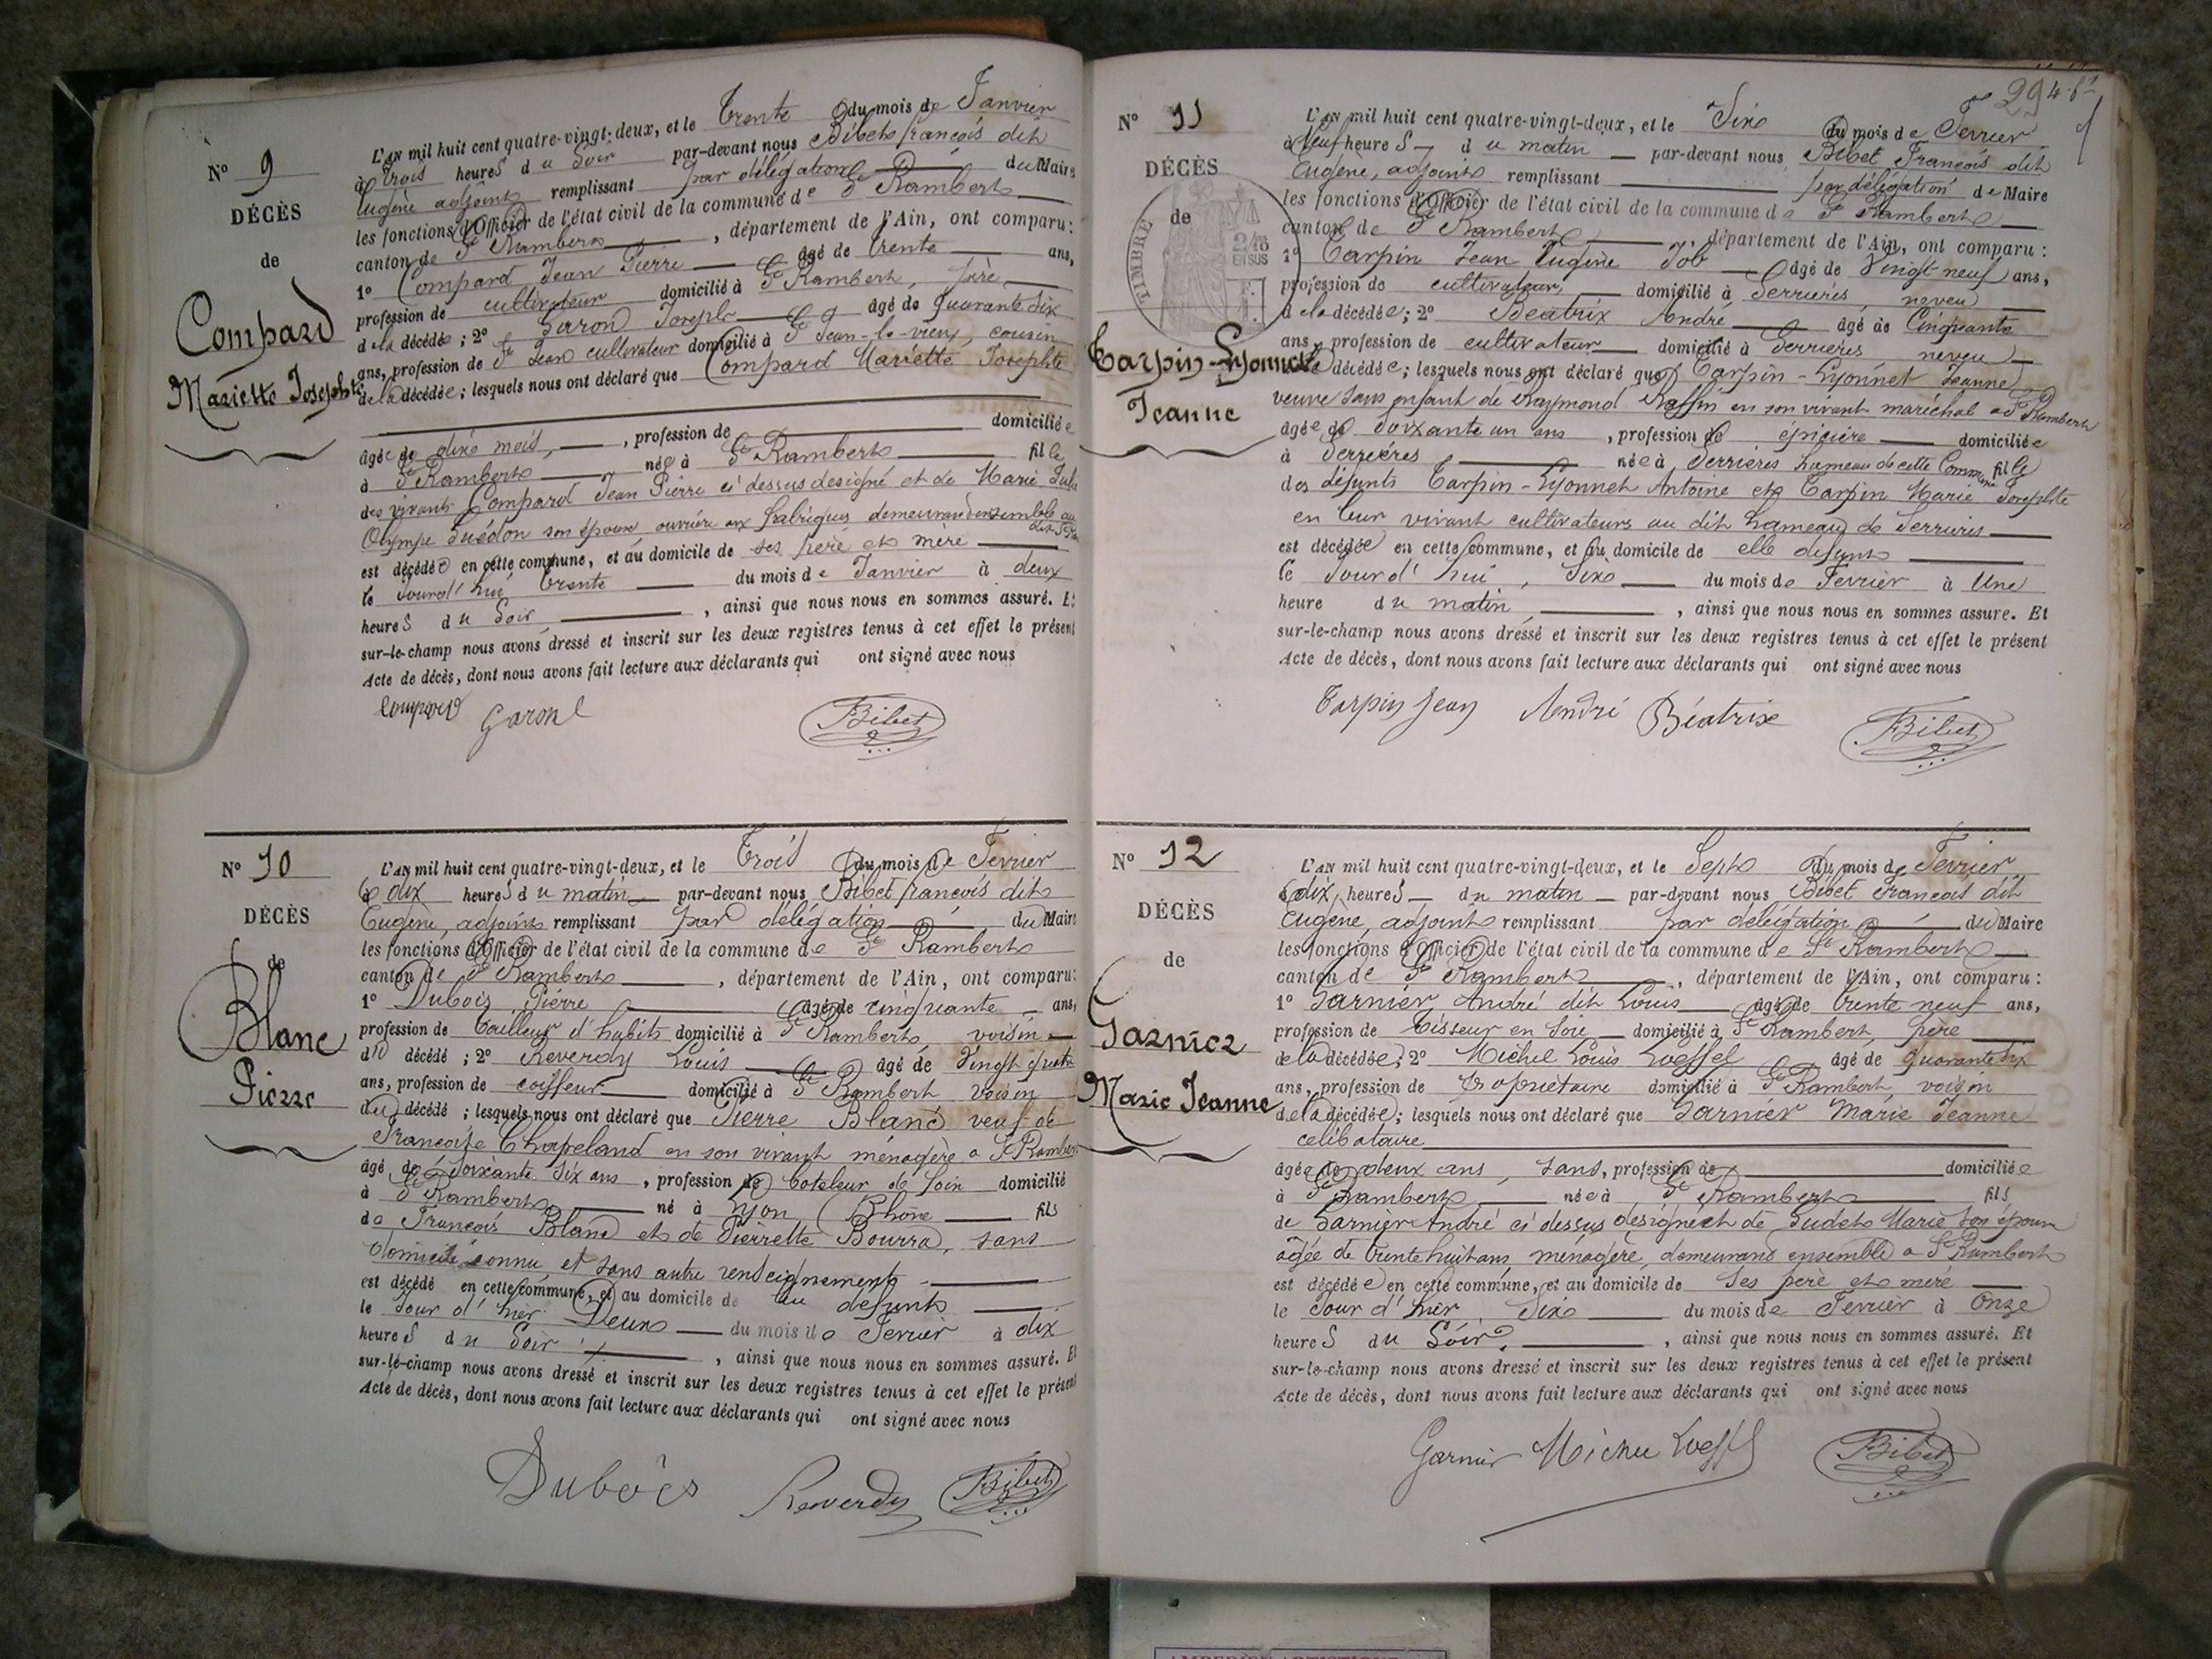 N° 9
DÉCÈS
de
Compard
Mariette Josephte
L'an mil huit cent quatre-vingt-deux, et le Trente du mois de Janvier
à Trois heures du Soir par-devant nous Bibet françois dit
Eugène adjoint remplissant par délégation du Maire
les fonctions d'Officier de l'état civil de la commune de St Rambert
canton de St Rambert, département de l'Ain, ont comparu:
1° Compard Jean Pierre âgé de trente ans,
profession de cultivateur domicilié à St Rambert, père
de la décédée; 2° Garon Joseph âgé de quarante six
ans, profession de cultivateur domicilié à St Jean-le-vieux, cousin
de la décédée; lesquels nous ont déclaré que Compard Mariette Josephte
domiciliée
âgée de dixe mois, profession de
à St Rambert née à St Rambert fille
des vivants Compard Jean Pierre ci dessus designé et de Marie
Olympe son épouse ouvrière aux fabriques demeurand ensemble au
est décédée en cette commune, et au domicile de ses père et mère
le Jourd'hui trente du mois de Janvier à deux
heures du Soir, ainsi que nous nous en sommes assuré. Et
sur-le-champ nous avons dressé et inscrit sur les deux registres tenus à cet effet le présent
Acte de décès, dont nous avons fait lecture aux déclarants qui ont signé avec nous
Compard Garon Bibet
N° 10
DÉCÈS
de
Blanc
Pierre
L'an mil huit cent quatre-vingt-deux, et le Trois du mois de Fevrier
à dix heures du matin par-devant nous Bibet françois dit
Eugène, adjoint remplissant par délégation du Maire
les fonctions d'Officier de l'état civil de la commune de St Rambert
canton de St Rambert, département de l'Ain, ont comparu:
1° Dubois Pierre âgé de cinquante ans,
profession de tailleur d'habits domicilié à St Rambert voisin
du décédé; 2° Reverdy Louis âgé de Vingt quatre
ans, profession de coiffeur domicilié à St Rambert voisin
du décédé; lesquels nous ont déclaré que Pierre Blanc veuf de
Françoise Chapeland en son vivant ménagère a St Rambert
âgé de Soixante Six ans, profession de boteleur de foin domicilié
à St Rambert né à Lyon (Rhône fils
de François Blanc et de Pierrette Bourra, sans
domicile connu et sans autre renseignements
est décédé en cette commune, et au domicile de du defunt
le Jour d'hier Deux du mois de Fevrier à dix
heures du Soir, ainsi que nous nous en sommes assuré. Et
sur-le-champ nous avons dressé et inscrit sur les deux registres tenus à cet effet le présent
Acte de décès, dont nous avons fait lecture aux déclarants qui ont signé avec nous
Dubois Reverdy Bibet
294
N° 11
DÉCÈS
de
TIMBRE
2/10
EN SUS
Tarpin-Lyonnet
Jeanne
L'an mil huit cent quatre-vingt-deux, et le Sixe du mois de Fevrier
à Neuf heures du matin par-devant nous Bibet François dit
Eugène, adjoint remplissant par délégation de Maire
les fonctions d'Officier de l'état civil de la commune de St Rambert
canton de St Rambert, département de l'Ain, ont comparu:
1° Tarpin Jean Eugène Job âgé de Vingt neuf ans,
profession de cultivateur, domicilié à Serrières, neveu
de la décédée; 2° Béatrix André âgé de Cinquante
ans, profession de cultivateur domicilié à Serrières neveu
de la décédée; lesquels nous ont déclaré que Tarpin-Lyonnet Jeanne
veuve sans enfant de Raymond Raffin en son vivant maréchal a St Rambert
âgée de Soixante un ans, profession de épicière domiciliée
à Serrières, née à Serrières hameau de cette Commune fille
des défunts Tarpin-Lyonnet Antoine et Tarpin Marie Josephte
en leur vivant cultivateurs au dit hameau de Serrières
est décédée en cette commune, et au domicile de elle defunte
le Jourd'hui, Sixe du mois de Fevrier à Une
heure du matin, ainsi que nous nous en sommes assuré. Et
sur-le-champ nous avons dressé et inscrit sur les deux registres tenus à cet effet le présent
Acte de décès, dont nous avons fait lecture aux déclarants qui ont signé avec nous
Tarpin Jean André Béatrix Bibet
N° 12
DÉCÈS
de
Garnier
Marie Jeanne
L'an mil huit cent quatre-vingt-deux, et le Sept du mois de Fevrier
à dix, heures du matin par-devant nous Bibet François dit
Eugène, adjoint remplissant par délégation du Maire
les fonctions d'Officier de l'état civil de la commune de St Rambert
canton de St Rambert, département de l'Ain, ont comparu:
1° Garnier André dit Louis âgé de trente neuf ans,
profession de tisseur en soie domicilié à St Rambert, père
de la décédée; 2° Michel Louis Loeffel âgé de quarante six
ans, profession de propriétaire domicilié à St Rambert, voisin
de la décédée; lesquels nous ont déclaré que Garnier Marie Jeanne
celibataire
âgée de deux ans, sans, profession de domiciliée
à St Rambert née à St Rambert fils
de Garnier André ci dessus designé et de Judet Marie son épouse
agée de trente huit ans, ménagère, demeurant ensemble a St Rambert
est décédée en cette commune, et au domicile de ses père et mère
le Jour d'hier, Sixe du mois de Fevrier à Onze
heures du Soir, ainsi que nous nous en sommes assuré. Et
sur-le-champ nous avons dressé et inscrit sur les deux registres tenus à cet effet le présent
Acte de décès, dont nous avons fait lecture aux déclarants qui ont signé avec nous
Garnier Michel Loeffel Bibet